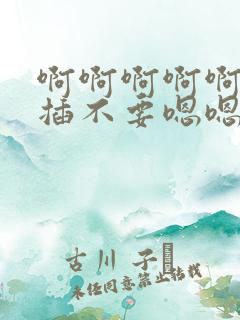 啊啊啊啊啊
插不要嗯嗯
古川 子
未经同意禁止转载